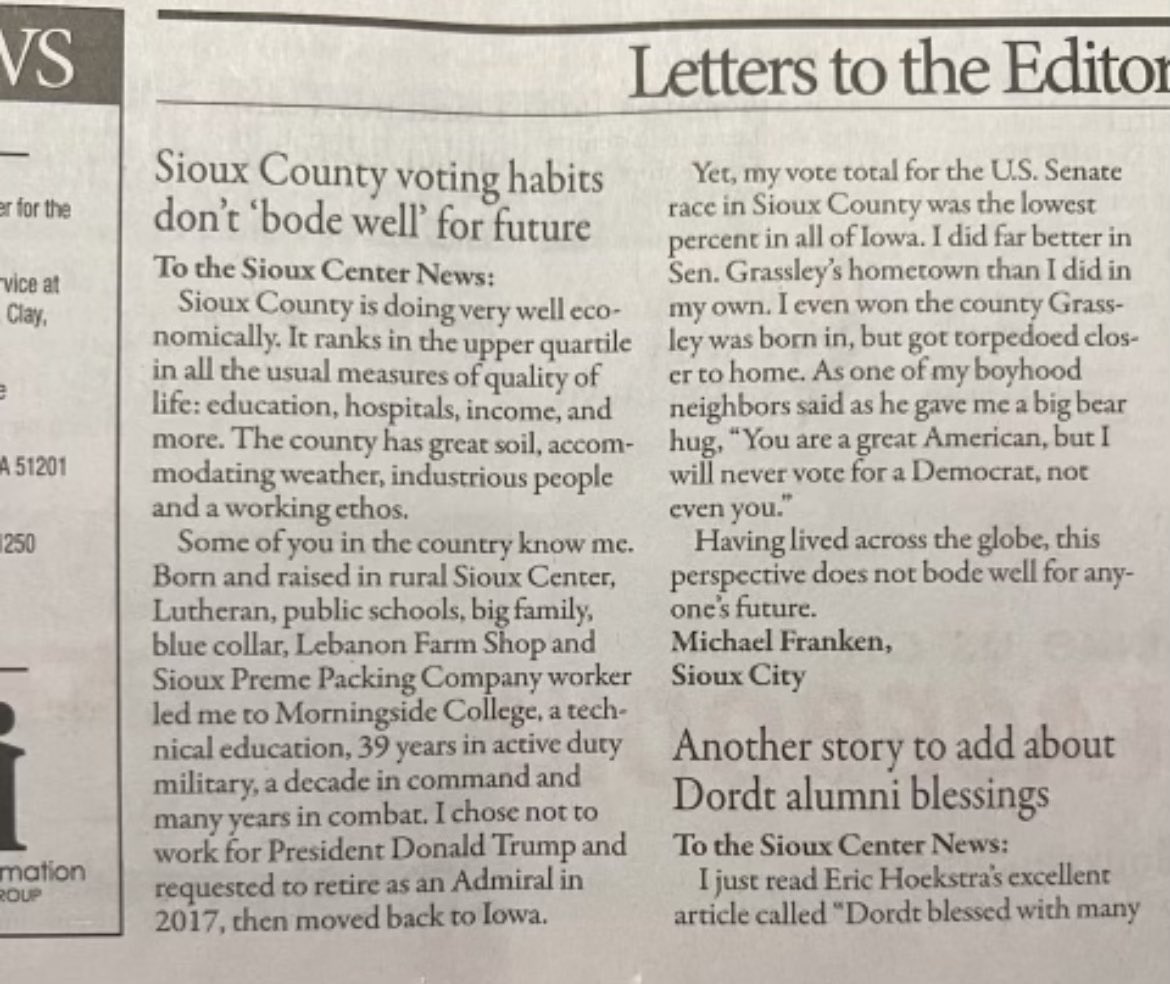 WS
er for the
rvice at
Clay,
e
A 51201
1250
i
mation
ROUP
Letters to the Editor
Sioux County voting habits
don't 'bode well' for future
To the Sioux Center News:
Sioux County is doing very well eco-
nomically. It ranks in the upper quartile
in all the usual measures of quality of
life: education, hospitals, income, and
more. The county has great soil, accom-
modating weather, industrious people
and a working ethos.
Some of you in the country know me.
Born and raised in rural Sioux Center,
Lutheran, public schools, big family,
blue collar, Lebanon Farm Shop and
Sioux Preme Packing Company worker
led me to Morningside College, a tech-
nical education, 39 years in active duty
military, a decade in command and
many years in combat. I chose not to
work for President Donald Trump and
requested to retire as an Admiral in
2017, then moved back to Iowa.
Yet, my vote total for the U.S. Senate
race in Sioux County was the lowest
percent in all of Iowa. I did far better in
Sen. Grassley's hometown than I did in
my own. I even won the county Grass-
ley was born in, but got torpedoed clos-
er to home. As one of my boyhood
neighbors said as he gave me a big bear
hug, "You are a great American, but I
will never vote for a Democrat, not
even you."
Having lived across the globe, this
perspective does not bode well for any-
one's future.
Michael Franken,
Sioux City
Another story to add about
Dordt alumni blessings
To the Sioux Center News:
I just read Eric Hoekstra's excellent
article called "Dordt blessed with many